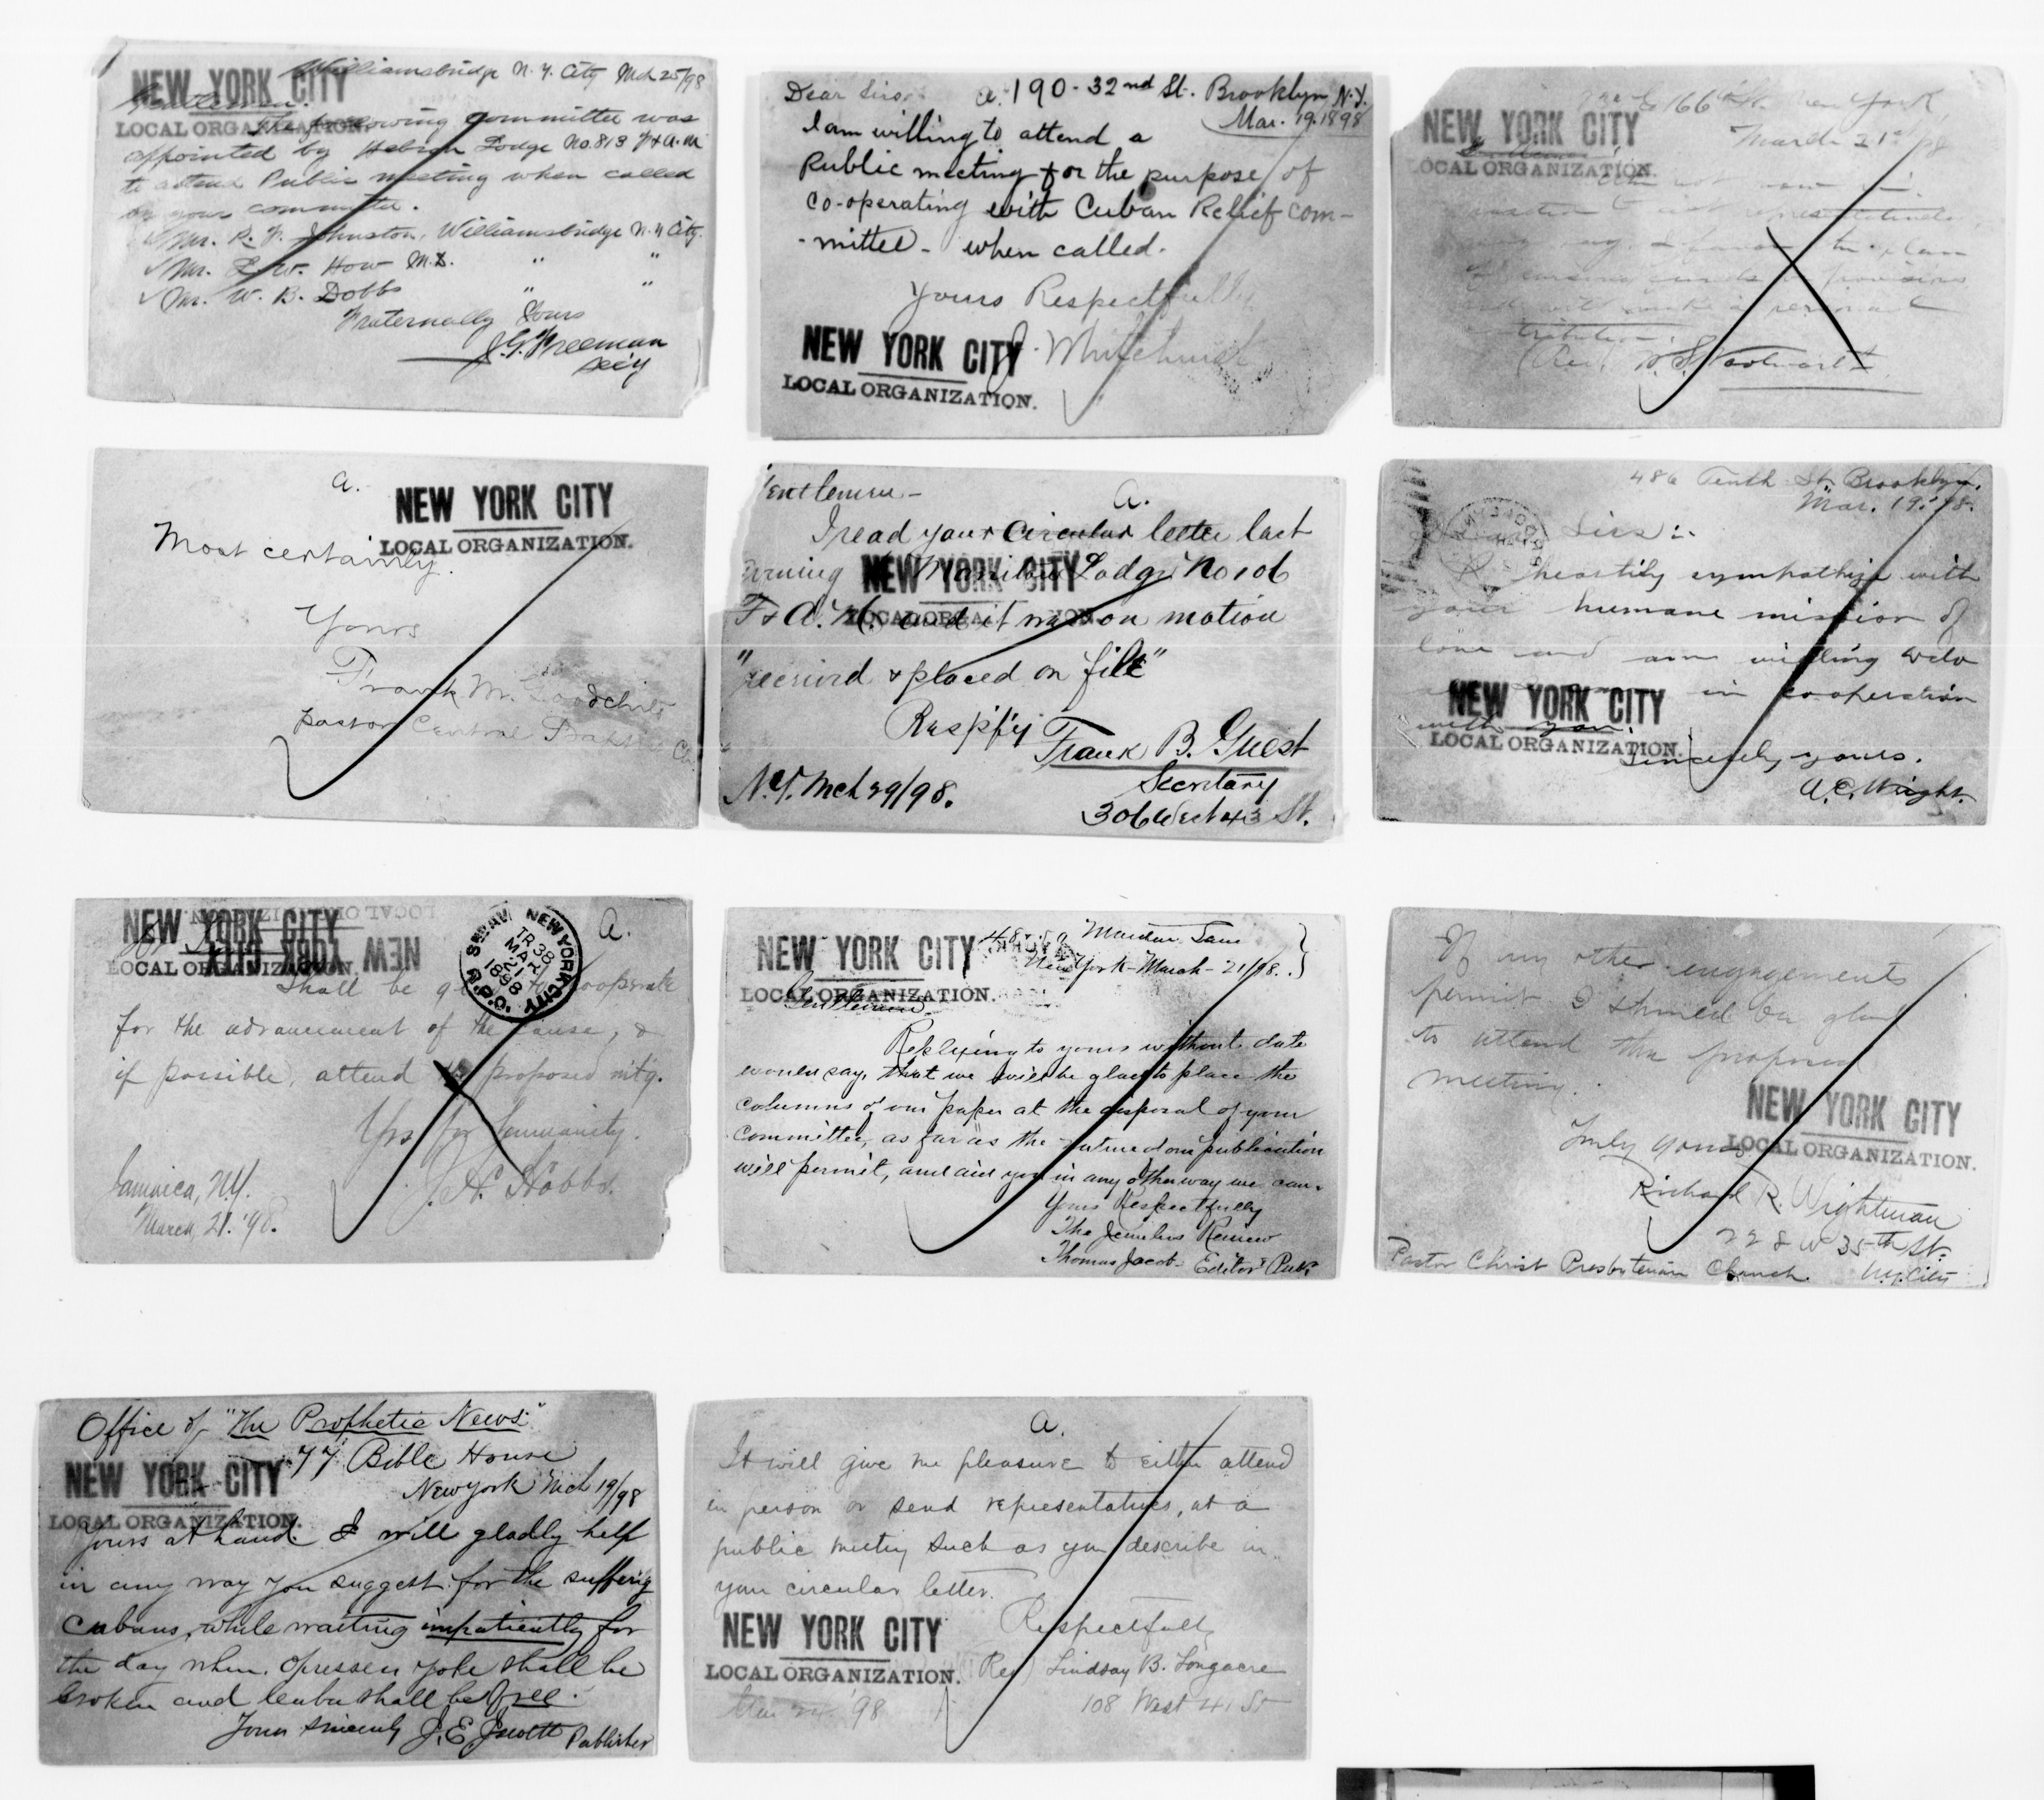 Williamsbridge N.Y. City Mch 25/98
NEW YORK CITY
LOCAL ORGANIZATION.
Gentlemen.
The following Committee was
appointed by Hebron Lodge No. 813 F & A. M
to attend Public meeting when called
by your committee.
Mr. R. J. Johnston, Williamsbridge N.Y City.
Mr. E. W. How M.D. " "
Mr. W. B. Dobbs " "
Fraternally Yours
J. G. Freeman
Secy
Dear Sirs, a. 190 - 32nd St. Brooklyn, N.Y.
Mar. 19. 1898
I am willing to attend a
Public meeting for the purpose of
co-operating with Cuban Relief com-
-mittee - when called.
Yours Respectfully
J.
NEW YORK CITY
LOCAL ORGANIZATION.
E 166th St. New York,
March 21st /98
NEW YORK CITY
LOCAL ORGANIZATION.
Gentlemen:
representatives,
I favor the plan
of raising funds & provisions
and will make a personal
contribution.
(Rev.
a.
NEW YORK CITY
LOCAL ORGANIZATION.
Most certainly.
Yours
Frank M. Goodchild
Pastor Central Baptist Ch.
Gentlemen -
a.
I read your Circular letter last
evening Lodge No 106
NEW YORK CITY
LOCAL ORGANIZATION
F & A. M. and it was on motion
"received & placed on file"
Respfy
Frank B. Guest
Secretary
N.Y. Mch 29/98.
306 West 43 St.
486 Tenth St. Brooklyn.
Mar. 19. '98.
Sirs:-
I heartily sympathize with
your humane mission of
love and am willing to do
in co-operation
NEW YORK CITY
with you.
LOCAL ORGANIZATION.
Sincerely yours.
A. C. Wright.
NEW YORK CITY
LOCAL ORGANIZATION
NEW YORK CITY
LOCAL ORGANIZATION.
NEW YORK CITY
MAR 21
1898
R.P.O.
a.
Shall be glad to cooperate
for the advancement of the cause, &
if possible, attend the proposed mt'g.
Yrs for humanity.
J. H. Hobbs.
Jamaica, N.Y.
March, 21. '98.
48 & 50 Maiden Lane
New York - March - 21/98.
NEW YORK CITY
LOCAL ORGANIZATION.
Gentlemen
Replying to yours without date
would say, that we will be glad to place the
columns of our paper at the disposal of your
committee, as far as the nature of our publication
will permit, and aid you in any other way we can.
Yours Respectfully
The Jewelers Review
Thomas Jacob - Editor & Pub.
If my other engagements
permit I should be glad
to attend the proposed
meeting.
NEW YORK CITY
LOCAL ORGANIZATION.
Truly yours
Richard R. Wightman
228 W 35th St.
Pastor Christ Presbyterian Church. N.Y. City
Office of "The Prophetic News."
77 Bible House
NEW YORK CITY
New York Mch 19/98
LOCAL ORGANIZATION.
Yours at hand. I will gladly help
in any way you suggest for the suffering
Cubans, while waiting impatiently for
the day when. Opressers yoke shall be
broken and Cuba shall be free.
Yours Sincerely J. E. Jewett Publisher
a.
It will give me pleasure to either attend
in person or send representatives, at a
public meeting such as you describe in
your circular letter.
NEW YORK CITY
LOCAL ORGANIZATION.
Respectfully
Rev) Lindsay B. Longacre
108 West 41 St
'98